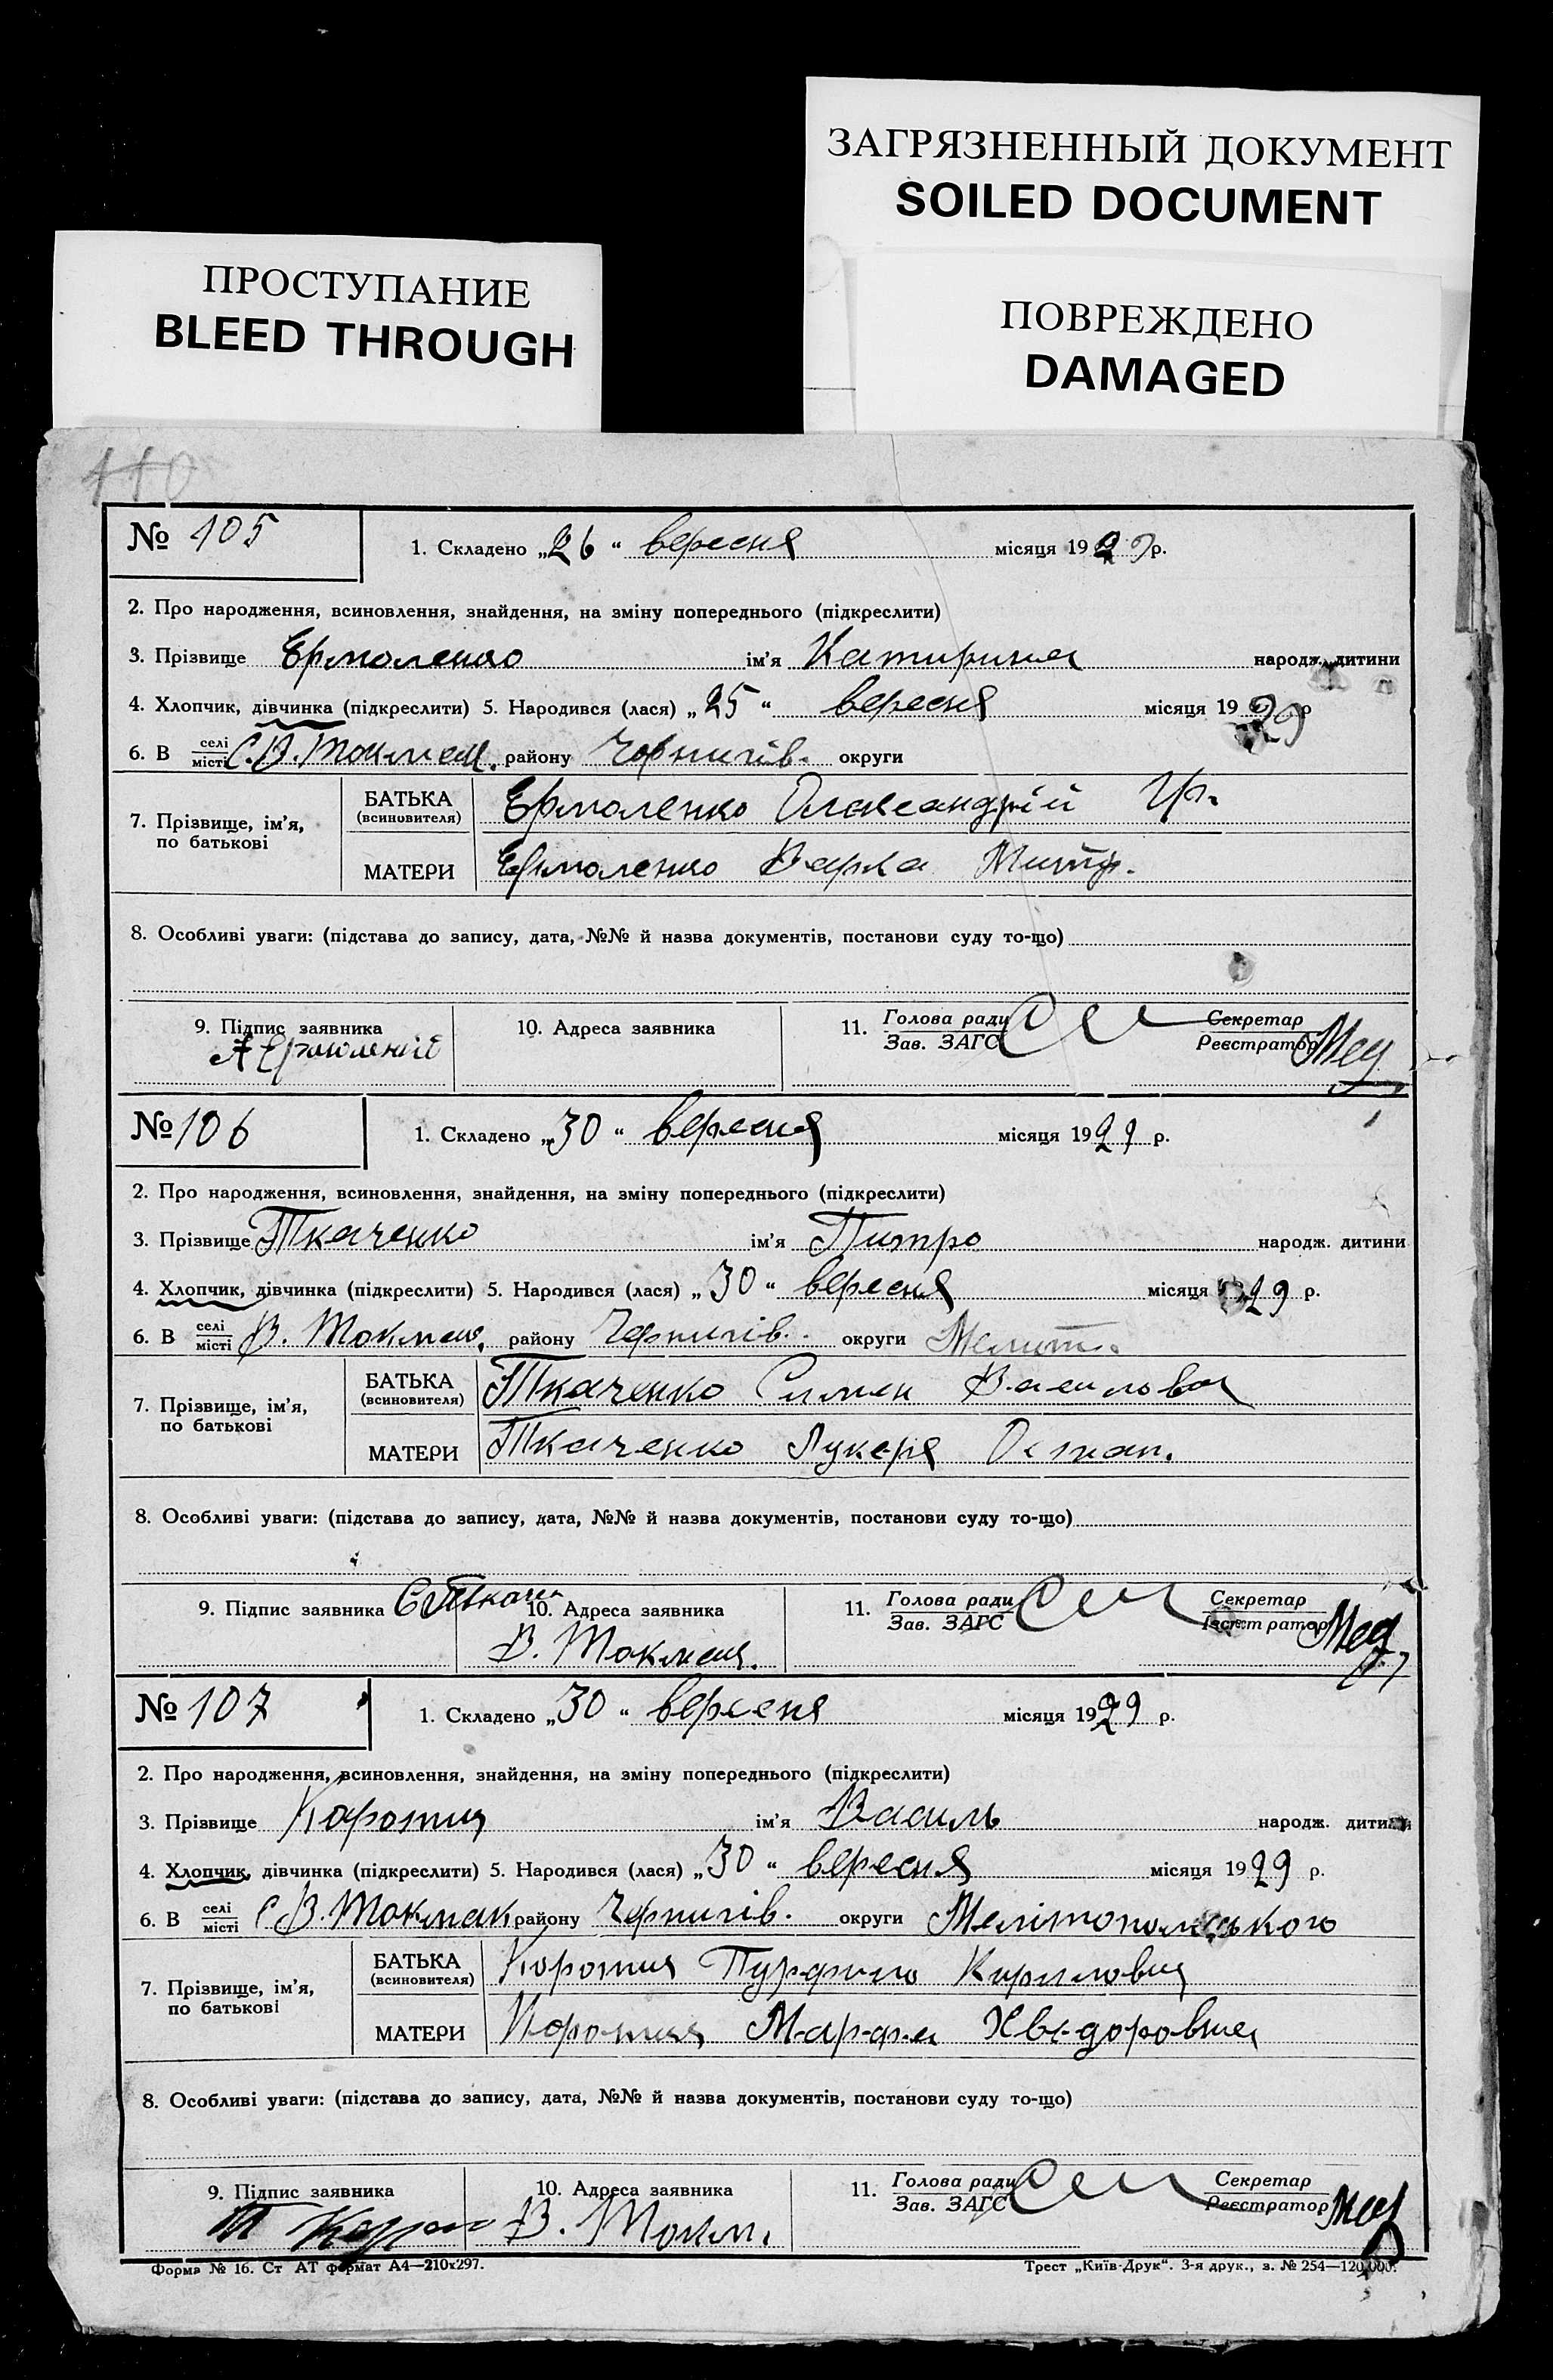 ЗАГРЯЗНЕННЫЙ ДОКУМЕНТ
SOILED DOCUMENT
ПРОСТУПАНИЕ
BLEED THROUGH
ПОВРЕЖДЕНО
DAMAGED
110
№ 105 1. Складено „26“ вересня місяця 1929 р.
2. Про народження, всиновлення, знайдення, на зміну попереднього (підкреслити)
3. Прізвище Ермоленко ім'я Катирина народж. дитини
4. Хлопчик, дівчинка (підкреслити) 5. Народився (лася) „25“ вересня місяця 1929 р
6. В селі місті С. В. Токмак. району Чернигів. округи
7. Прізвище, ім'я, по батькові
БАТЬКА (всиновителя) Ермоленко Олександрій Гр.
МАТЕРИ Ермоленко Варка Митр.
8. Особливі уваги: (підстава до запису, дата, №№ й назва документів, постанови суду то-що)
9. Підпис заявника 10. Адреса заявника 11. Голова ради Зав. ЗАГС Секретар Реєстратор
А Ермоленко
№ 106 1. Складено „30“ вересня місяця 1929 р.
2. Про народження, всиновлення, знайдення, на зміну попереднього (підкреслити)
3. Прізвище Ткаченко ім'я Питро народж. дитини
4. Хлопчик, дівчинка (підкреслити) 5. Народився (лася) „30“ вересня місяця 1929 р.
6. В селі місті В. Токмак. району Чернигів. округи Меліт.
7. Прізвище, ім'я, по батькові
БАТЬКА (всиновителя) Ткаченко Симен Васильов
МАТЕРИ Ткаченко Лукеря Остап.
8. Особливі уваги: (підстава до запису, дата, №№ й назва документів, постанови суду то-що)
9. Підпис заявника С Ткачен 10. Адреса заявника 11. Голова ради Зав. ЗАГС Секретар Реєстратор
В. Токмак.
№ 107 1. Складено „30“ вересня місяця 1929 р.
2. Про народження, всиновлення, знайдення, на зміну попереднього (підкреслити)
3. Прізвище ім'я Василь народж. дитини
4. Хлопчик, дівчинка (підкреслити) 5. Народився (лася) „30“ вересня місяця 1929 р.
6. В селі місті С В. Токмак району Чернигів. округи Мелітопольського
7. Прізвище, ім'я, по батькові
БАТЬКА (всиновителя) Кирилович
МАТЕРИ Марфа Хведоровна
8. Особливі уваги: (підстава до запису, дата, №№ й назва документів, постанови суду то-що)
9. Підпис заявника 10. Адреса заявника 11. Голова ради Зав. ЗАГС Секретар Реєстратор
В. Токм.
Форма № 16. Ст АТ формат А4—210х297. Трест „Київ-Друк“. 3-я друк., з. № 254—120.000.